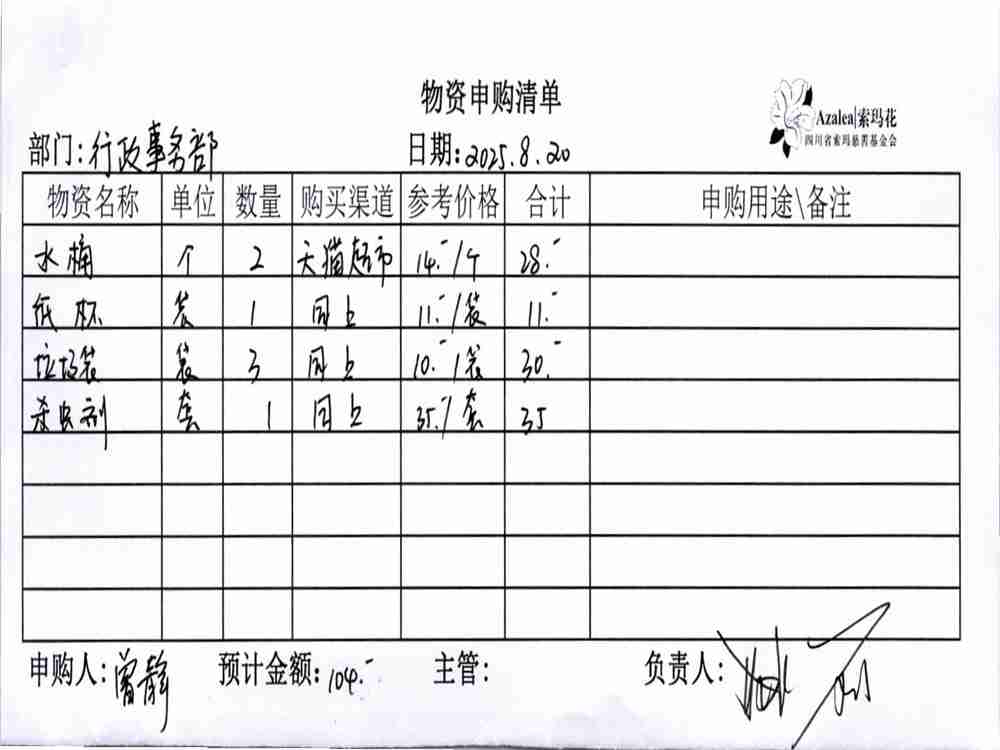 物资申购清单
Azalea|索玛花
四川省索玛慈善基金会
部门:行政事务部 日期:2025.8.20
物资名称 单位 数量 购买渠道 参考价格 合计 申购用途\备注
水桶 个 2 天猫超市 14.-/个 28.-
纸杯 袋 1 同上 11.-/袋 11.-
垃圾袋 袋 3 同上 10.-/袋 30.-
杀虫剂 套 1 同上 35./套 35
申购人:曾静 预计金额:104.- 主管: 负责人: